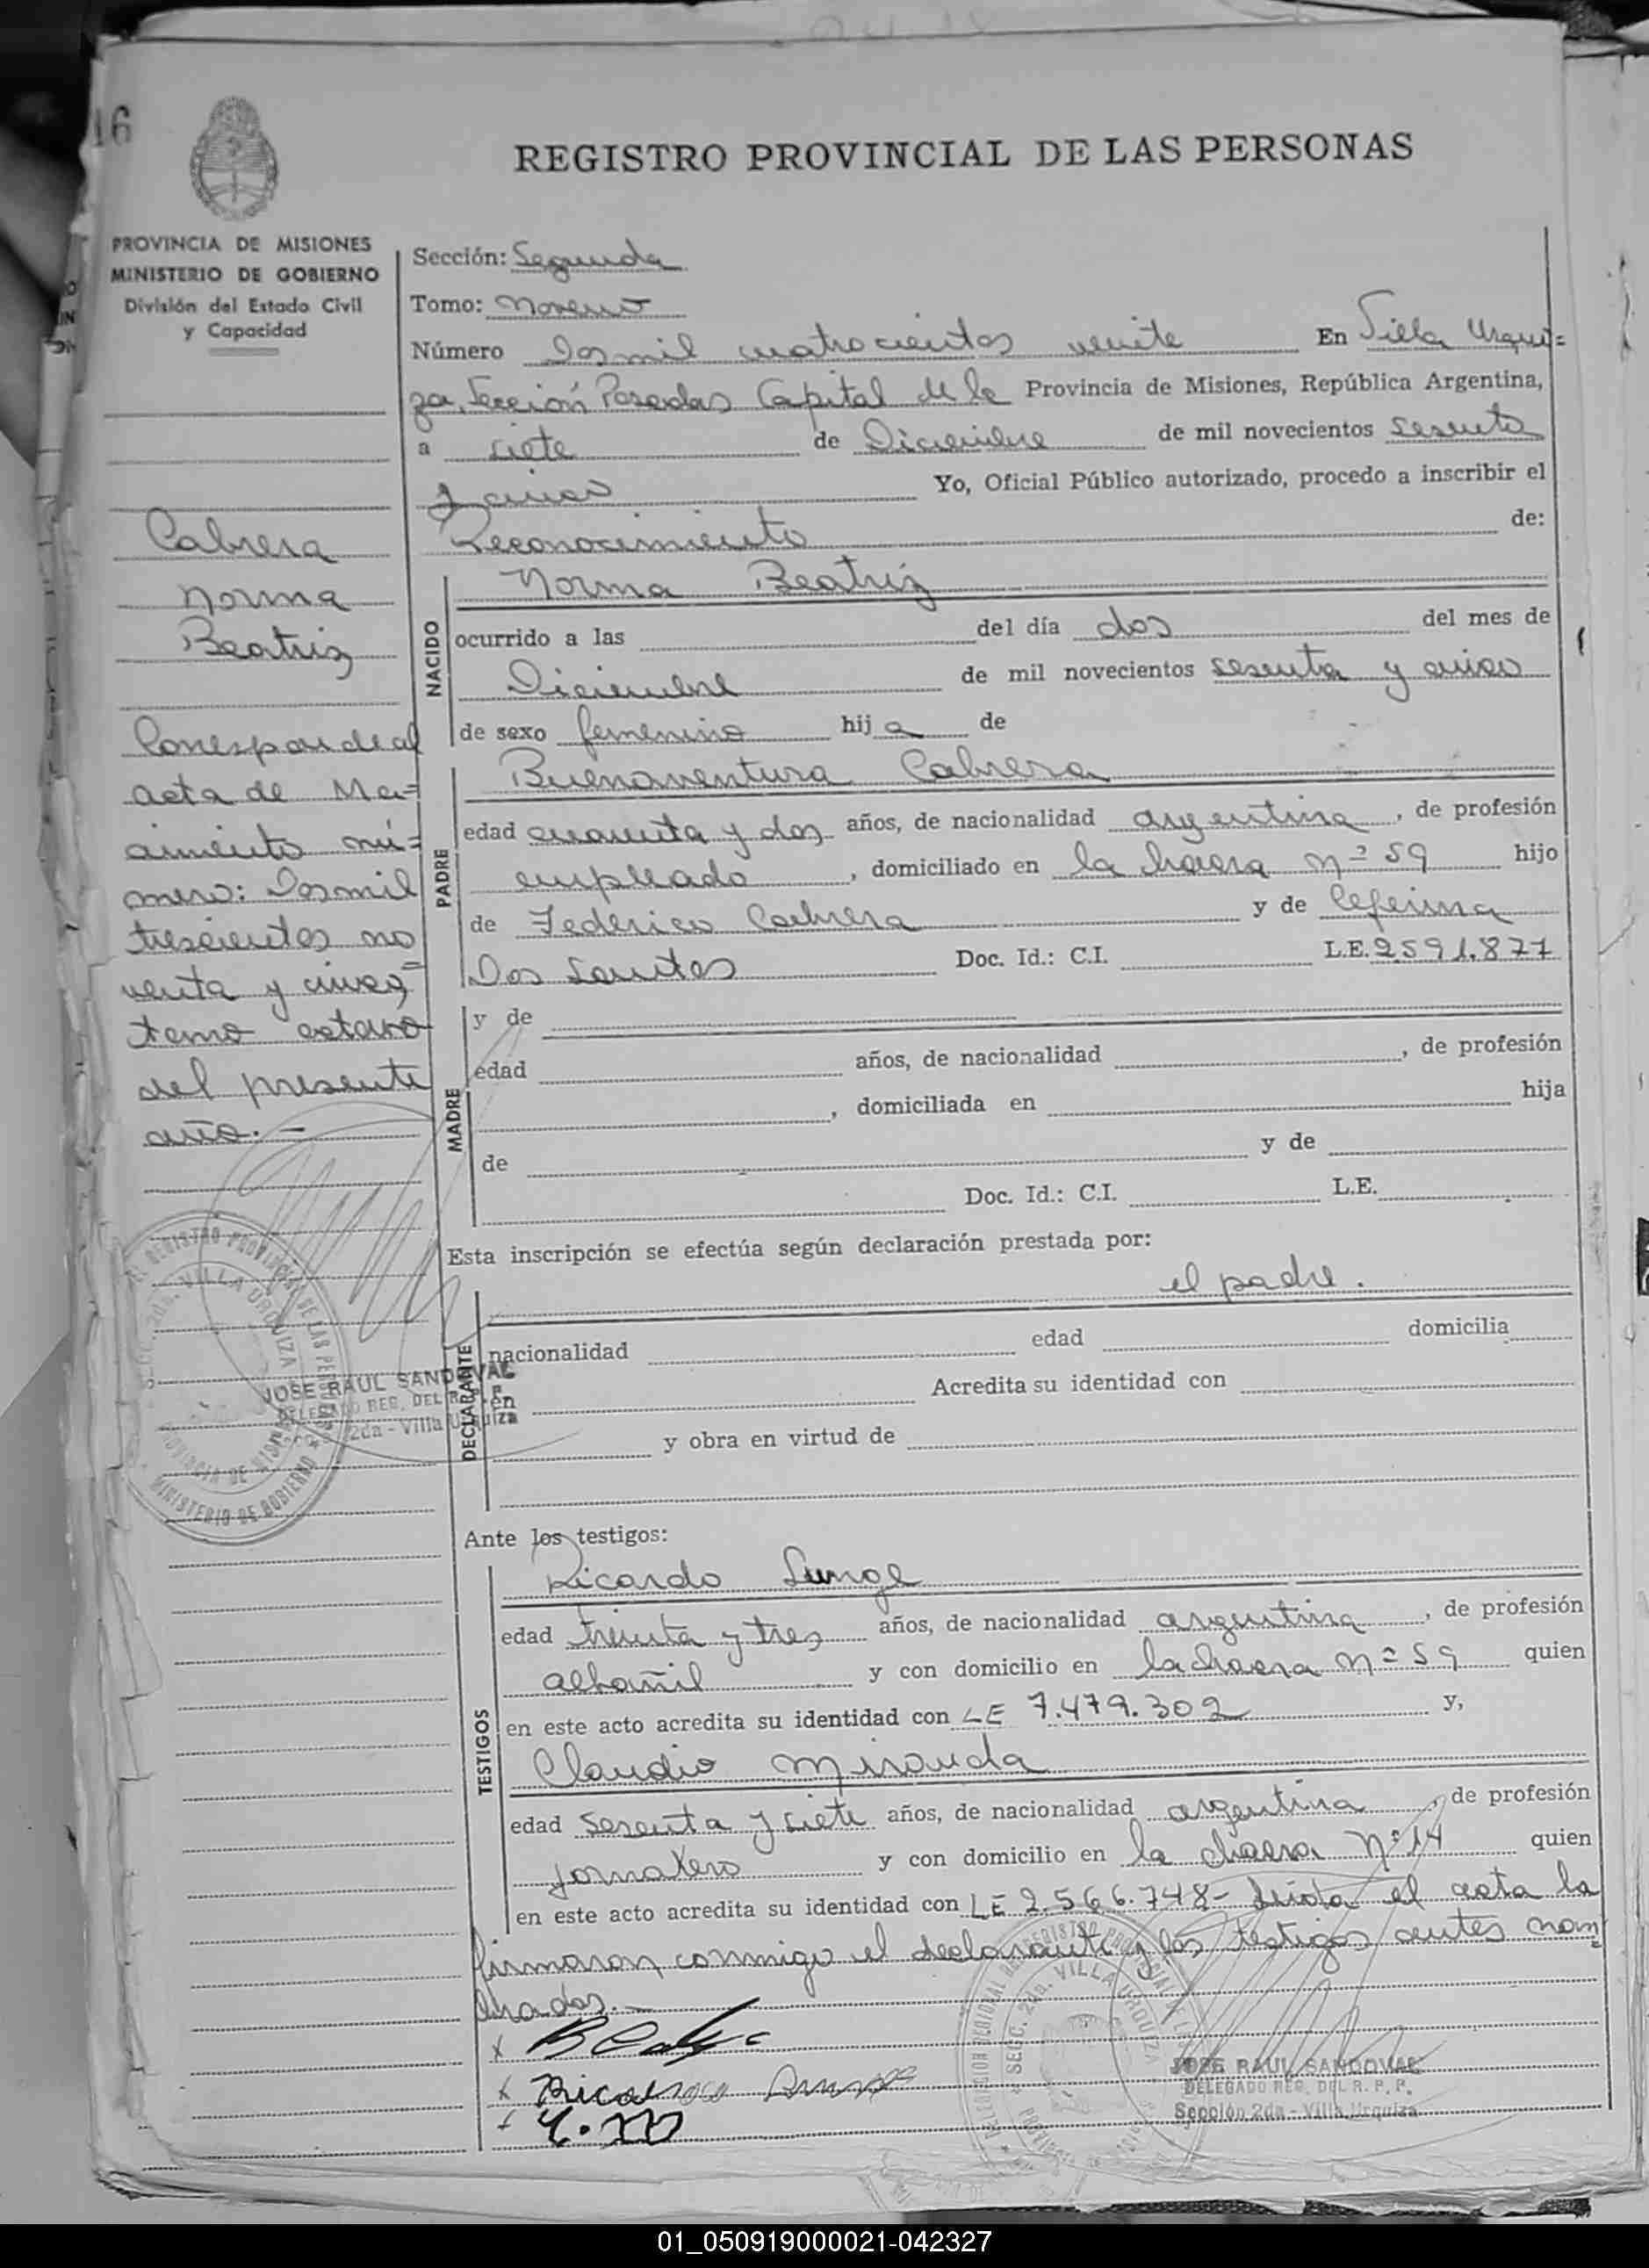 16
REGISTRO PROVINCIAL DE LAS PERSONAS
PROVINCIA DE MISIONES
MINISTERIO DE GOBIERNO
División del Estado Civil
y Capacidad
Cabrera
Norma
Beatriz
Corresponde al
acta de Na=
cimiento nú=
mero: Dosmil
trescientos no
venta y cinco,
tomo octavo
del presente
año. -
JOSE RAUL SANDOVAL
DELEGADO REG. DEL R. P. P.
Sección 2da - Villa Urquiza
Sección: Segunda
Tomo: Noveno
Número Dosmil cuatrocientos veinte En Villa Urqui=
za, Sección Posadas Capital de la Provincia de Misiones, República Argentina,
a siete de Diciembre de mil novecientos sesenta
y cinco Yo, Oficial Público autorizado, procedo a inscribir el
Reconocimiento de:
NACIDO
Norma Beatriz
ocurrido a las del día dos del mes de
Diciembre de mil novecientos sesenta y cinco
de sexo femenino hija de
PADRE
Buenaventura Cabrera
edad cuarenta y dos años, de nacionalidad argentina, de profesión
empleado, domiciliado en la chacra nº 59 hijo
de Federico Cabrera y de Ceferina
Dos Santos Doc. Id.: C.I. L.E. 2.591.877
MADRE
y de
edad años, de nacionalidad , de profesión
, domiciliada en hija
de y de
Doc. Id.: C.I. L.E.
Esta inscripción se efectúa según declaración prestada por:
el padre.
DECLARANTE
nacionalidad edad domicilia
en Acredita su identidad con
y obra en virtud de
Ante los testigos:
TESTIGOS
Ricardo
edad treinta y tres años, de nacionalidad argentina, de profesión
albañil y con domicilio en la chacra nº 59 quien
en este acto acredita su identidad con LE 7.479.302 y,
Claudio Miranda
edad sesenta y siete años, de nacionalidad argentina, de profesión
jornalero y con domicilio en la chacra Nº 14 quien
en este acto acredita su identidad con LE 2.566.748- leida el acta la
firmaron conmigo el declarante y los testigos antes nom
brados.-
JOSE RAUL SANDOVAL
DELEGADO REG. DEL R. P. P.
Sección 2da - Villa Urquiza
01_050919000021-042327